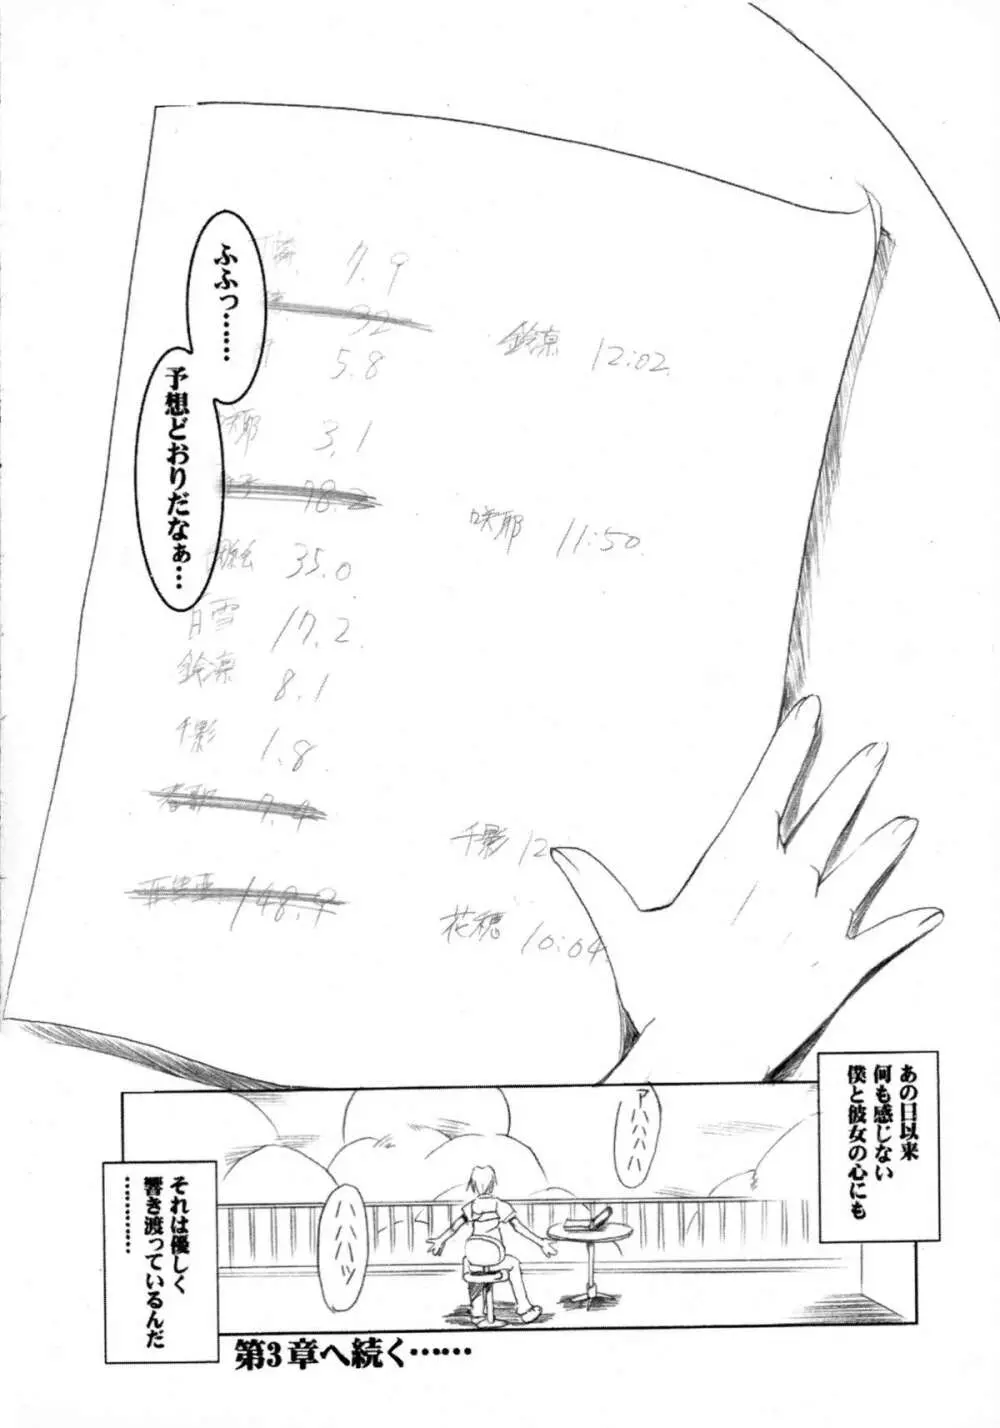 ふふっ……
予想どおりだなぁ…
7.9
92
鈴凛 12:02
5.8
咲耶 3.1
78.2
咲耶 11:50
35.0
白雪 17.2
鈴凛 8.1
千影 1.8
春歌 7.4
千影 12
亞里亞 148.9
花穂 10:04
あの日以来
何も感じない
僕と彼女の心にも
アハハハハ
ハハハハッ
それは優しく
響き渡っているんだ
…………
第3章へ続く……